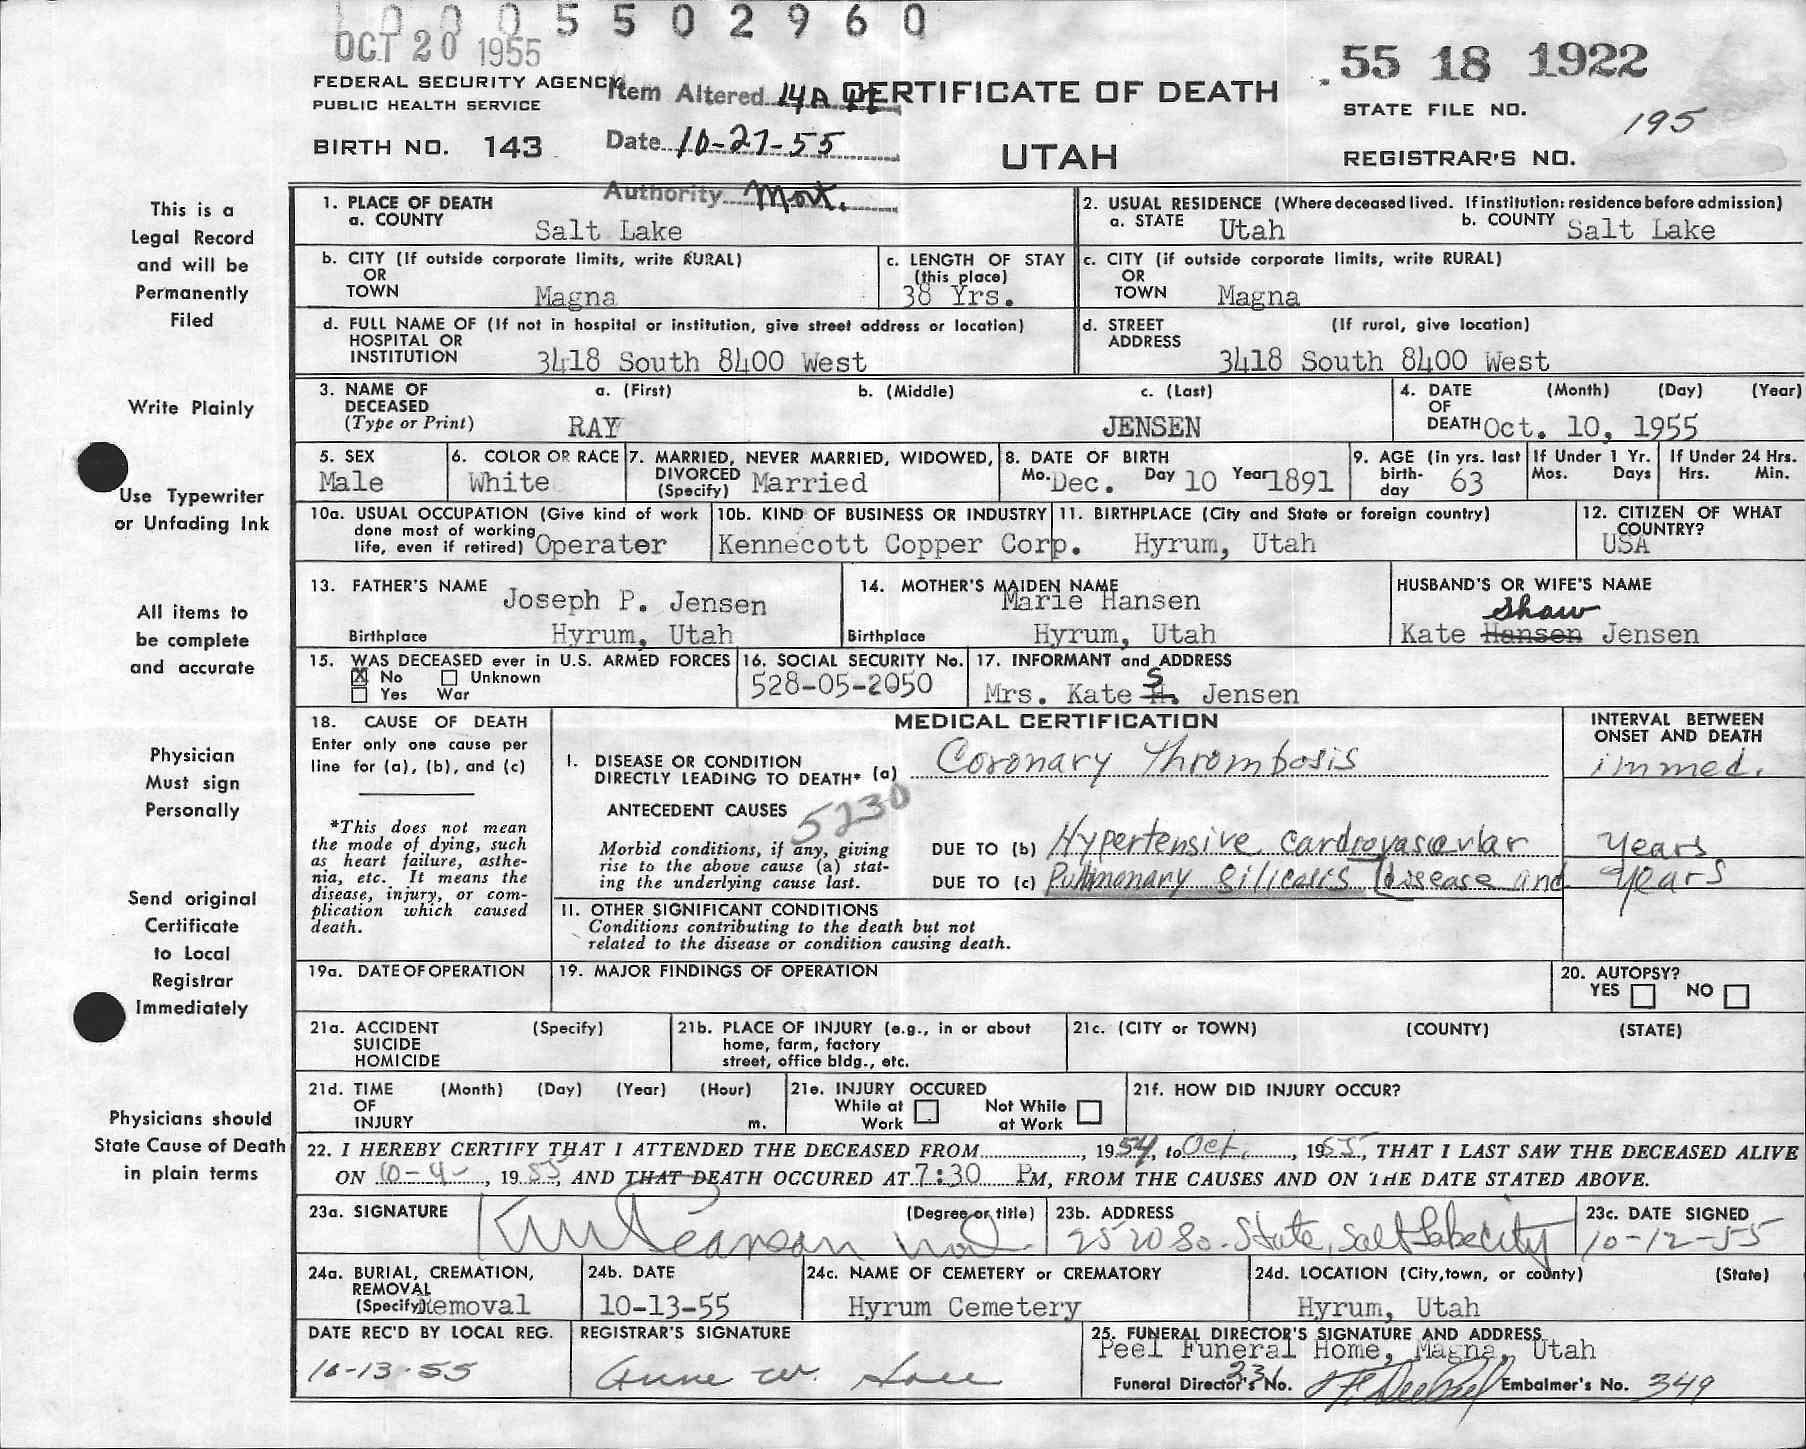 0005502960
OCT 20 1955
55 18 1922
FEDERAL SECURITY AGENCY
PUBLIC HEALTH SERVICE
Item Altered 14A
CERTIFICATE OF DEATH
STATE FILE NO.
195
BIRTH NO. 143
Date 10-27-55
UTAH
REGISTRAR'S NO.
Authority Mort.
This is a
Legal Record
and will be
Permanently
Filed
Write Plainly
Use Typewriter
or Unfading Ink
All items to
be complete
and accurate
Physician
Must sign
Personally
Send original
Certificate
to Local
Registrar
Immediately
Physicians should
State Cause of Death
in plain terms
1. PLACE OF DEATH
a. COUNTY Salt Lake
2. USUAL RESIDENCE (Where deceased lived. If institution: residence before admission)
a. STATE Utah b. COUNTY Salt Lake
b. CITY (If outside corporate limits, write RURAL)
OR
TOWN Magna
c. LENGTH OF STAY
(this place)
38 Yrs.
c. CITY (if outside corporate limits, write RURAL)
OR
TOWN Magna
d. FULL NAME OF (If not in hospital or institution, give street address or location)
HOSPITAL OR
INSTITUTION 3418 South 8400 West
d. STREET (If rural, give location)
ADDRESS
3418 South 8400 West
3. NAME OF a. (First) b. (Middle) c. (Last)
DECEASED
(Type or Print) RAY JENSEN
4. DATE (Month) (Day) (Year)
OF
DEATH Oct. 10, 1955
5. SEX
Male
6. COLOR OR RACE
White
7. MARRIED, NEVER MARRIED, WIDOWED,
DIVORCED
(Specify) Married
8. DATE OF BIRTH
Mo. Dec. Day 10 Year 1891
9. AGE (in yrs. last
birth-
day 63
If Under 1 Yr.
Mos. Days
If Under 24 Hrs.
Hrs. Min.
10a. USUAL OCCUPATION (Give kind of work
done most of working
life, even if retired) Operater
10b. KIND OF BUSINESS OR INDUSTRY
Kennecott Copper Corp.
11. BIRTHPLACE (City and State or foreign country)
Hyrum, Utah
12. CITIZEN OF WHAT
COUNTRY?
USA
13. FATHER'S NAME Joseph P. Jensen
Birthplace Hyrum, Utah
14. MOTHER'S MAIDEN NAME
Marie Hansen
Birthplace Hyrum, Utah
HUSBAND'S OR WIFE'S NAME
Shaw
Kate Hansen Jensen
15. WAS DECEASED ever in U.S. ARMED FORCES
X No Unknown
Yes War
16. SOCIAL SECURITY No.
528-05-2050
17. INFORMANT and ADDRESS
S
Mrs. Kate H. Jensen
18. CAUSE OF DEATH
Enter only one cause per
line for (a), (b), and (c)
*This does not mean
the mode of dying, such
as heart failure, asthe-
nia, etc. It means the
disease, injury, or com-
plication which caused
death.
MEDICAL CERTIFICATION
INTERVAL BETWEEN
ONSET AND DEATH
I. DISEASE OR CONDITION
DIRECTLY LEADING TO DEATH* (a) Coronary Thrombosis immed.
ANTECEDENT CAUSES
5230
Morbid conditions, if any, giving
rise to the above cause (a) stat-
ing the underlying cause last.
DUE TO (b) Hypertensive cardiovascular years
DUE TO (c) Pulmonary Silicosis disease and years
II. OTHER SIGNIFICANT CONDITIONS
Conditions contributing to the death but not
related to the disease or condition causing death.
19a. DATE OF OPERATION
19. MAJOR FINDINGS OF OPERATION
20. AUTOPSY?
YES NO
21a. ACCIDENT (Specify)
SUICIDE
HOMICIDE
21b. PLACE OF INJURY (e.g., in or about
home, farm, factory
street, office bldg., etc.
21c. (CITY or TOWN) (COUNTY) (STATE)
21d. TIME (Month) (Day) (Year) (Hour)
OF
INJURY m.
21e. INJURY OCCURED
While at Work Not While at Work
21f. HOW DID INJURY OCCUR?
22. I HEREBY CERTIFY THAT I ATTENDED THE DECEASED FROM , 1954, to Oct. , 1955, THAT I LAST SAW THE DECEASED ALIVE
ON 10-4- , 1955, AND THAT DEATH OCCURED AT 7:30 PM, FROM THE CAUSES AND ON THE DATE STATED ABOVE.
23a. SIGNATURE (Degree or title)
23b. ADDRESS
2520 So. State, Salt Lake City
23c. DATE SIGNED
10-12-55
24a. BURIAL, CREMATION,
REMOVAL
(Specify) Removal
24b. DATE
10-13-55
24c. NAME OF CEMETERY or CREMATORY
Hyrum Cemetery
24d. LOCATION (City, town, or county) (State)
Hyrum, Utah
DATE REC'D BY LOCAL REG.
10-13-55
REGISTRAR'S SIGNATURE
Anne W.
25. FUNERAL DIRECTOR'S SIGNATURE AND ADDRESS
Peel Funeral Home, Magna, Utah
Funeral Director's No. 236 Embalmer's No. 349